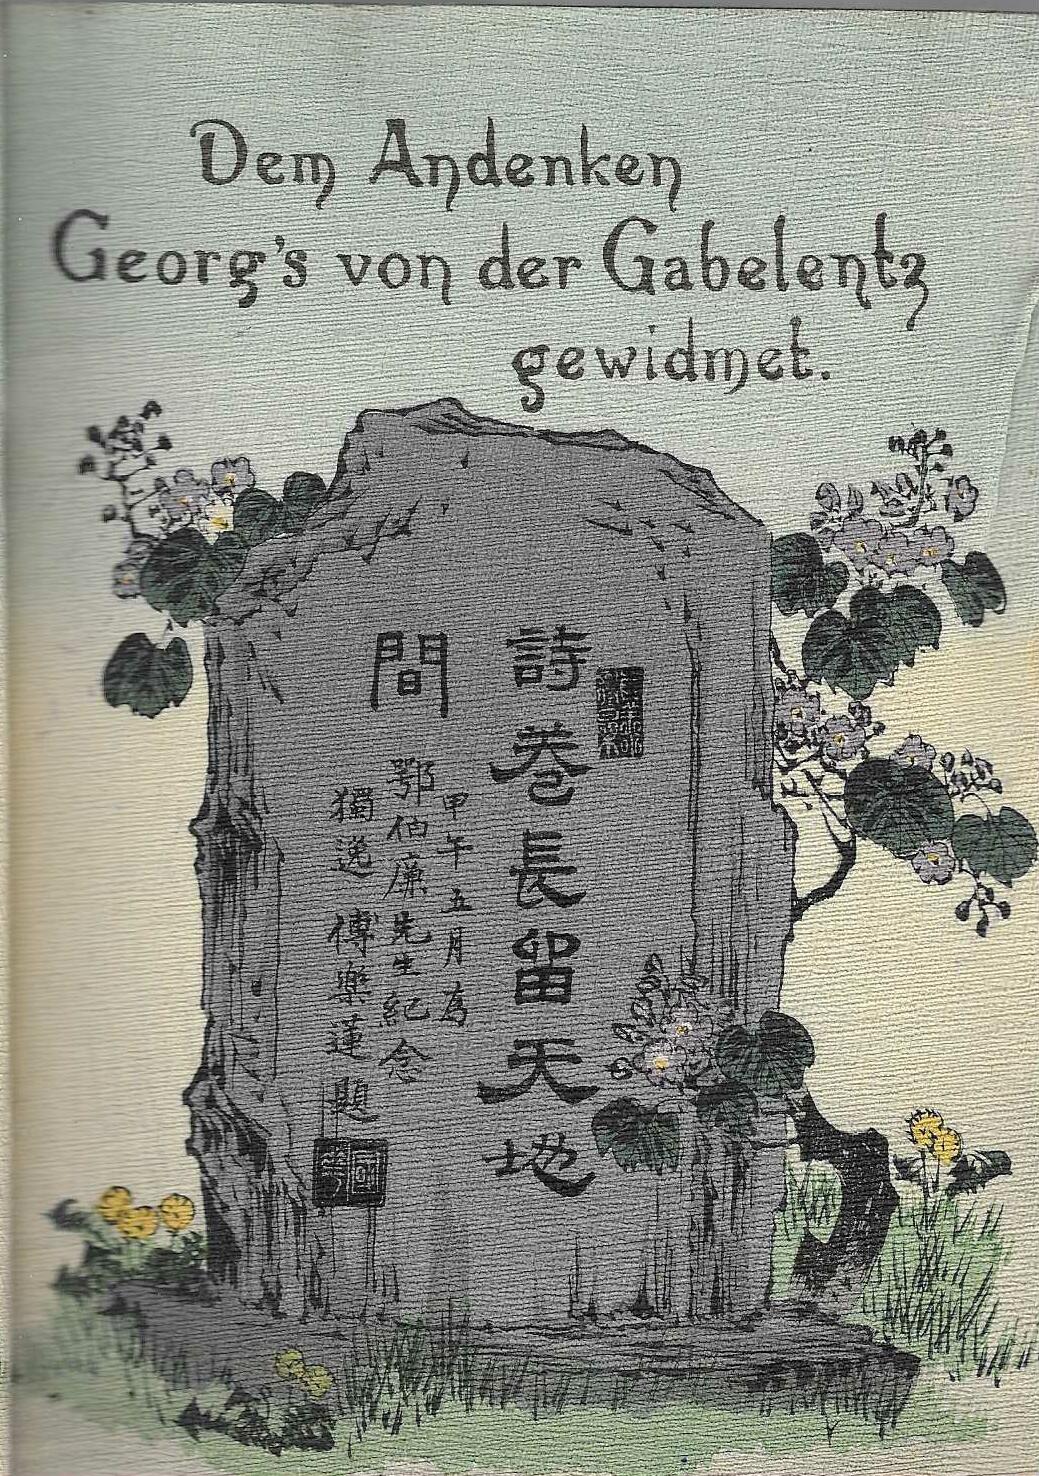 Dem Andenken
Georg's von der Gabelentz
gewidmet.
詩卷長留天地
間
甲午五月為
鄂伯廉先生紀念
獨逸 傅樂蓮題